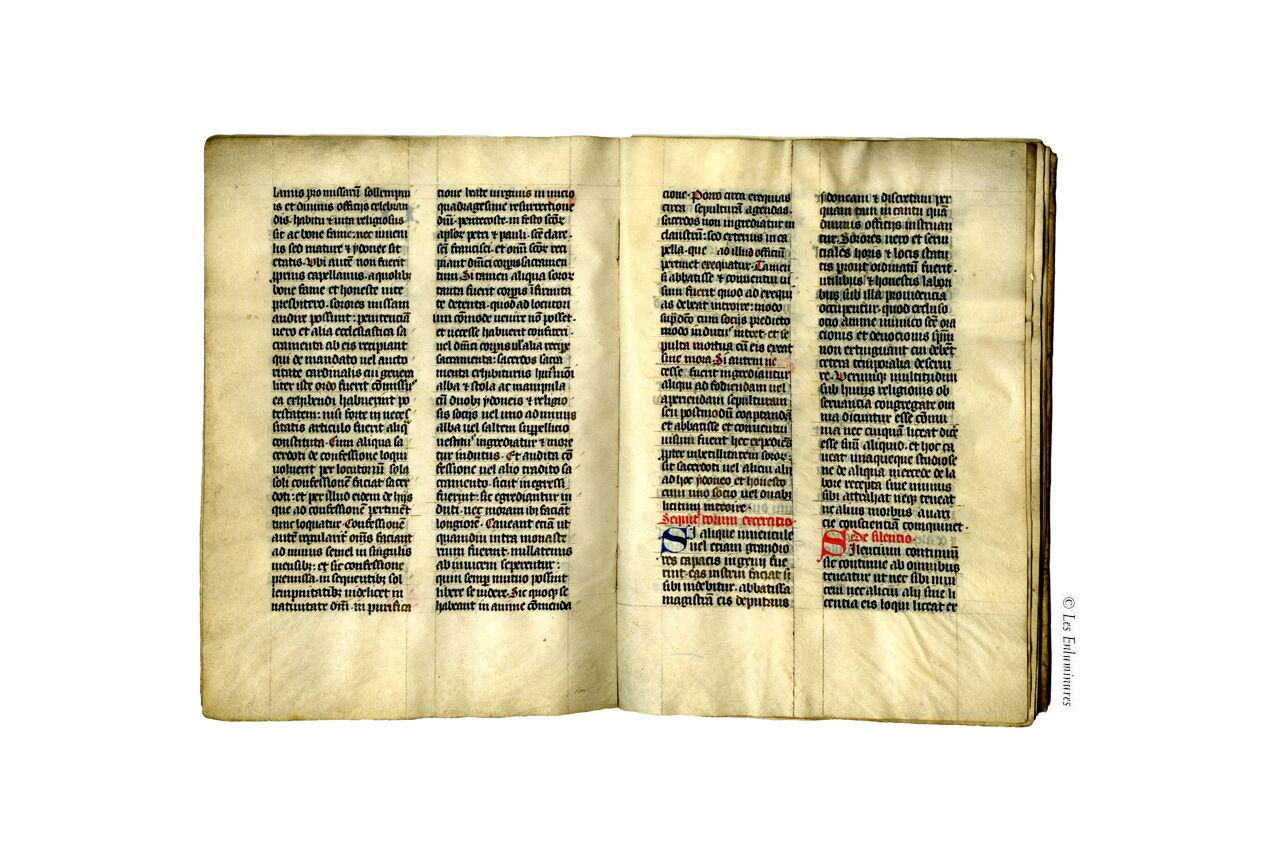 lanus pro missarū sollempn
is et diuinis officijs celebran
dis. habitu & uita religiosus
sit ac bone fame: nec iuueni
lis sed mature & ydonee sit
etatis. Vbi autē non fuerit
prius capellanus. a quolibꝫ
bone fame et honeste uite
presbitero. sorores missam
audire possint. penitenciā
uero et alia ecclesiastica sa
cramenta ab eis recipiant
qui de mandato uel aucto
ritate cardinalis cui genera
liter iste ordo fuerit cōmissus
ea exhibendi habuerint po
testatem: nisi forte in neces
sitatis articulo fuerit aliq̄
constituta. Cum aliqua sa
cerdoti de confessione loqui
uoluerit per locutoriū sola
soli confessionē faciat sacer
doti. et per illud eidem de hijs
que ad confessionē pertinēt
tunc loquatur. Confessionē
autē regularit̄ om̄s faciant
ad minus semel in singulis
mensibꝫ. et sic confessione
premissa. in sequentibꝫ sol
lempnitatibꝫ videlicet in
natiuitate dn̄i. in purifica
cione beate uirginis in inicio
quadragesime resurrectione
dn̄i. pentecoste. in festo sc̄or̄
aplor̄ petri & pauli. sc̄e clare.
sc̄i francisci. et om̄i sc̄or̄ reci
piant dn̄ici corpis sacramen
tum. Si tamen aliqua soror
tanta fuerit corpis ifirmita
te detenta. quod ad locutori
um cōmode uenire nō posset.
et necesse habuerit confiteri.
uel dn̄ici corpis ul' alia recipe
sacramenta: sacerdos sacra
menta exhibiturus
alba & stola ac manipula
cū duobꝫ ydoneis & religio
sis socijs uel uno ad minus
alba uel saltem suppellicio
uestitis ingrediatur & more
tur indutus. Et audita cō
fessione uel alio tradito sa
cramento. sicut ingressi
fuerint: sic egrediantur in
duti. nec moram ibi faciāt
longiorē. Caueant eciā ut
quamdiu intra monaste
rium fuerint. nullatenus
ab inuicem seperentur.
quin semꝑ mutuo possint
libere se uidere. Sic quoqꝫ se
habeant in anime cōmenda
cione. Porro circa exequias
circa sepulturā agendas.
sacerdos non ingrediatur in
claustrū: sed exterius in ca
pella. que ad illud officiū
pertinet exequatur. Tamen
si abbatisse & conuentui ui
sum fuerit quod ad exequi
as debeat introire: modo
sup̄dc̄o cum socijs predicto
modo indutꝰ intret. et se
pulta mortua cū eis exeat
sine mora. Si autem ne
cesse fuerit ingrediantur
aliqui ad fodiendam uel
aperiendam sepulturam.
seu postmodū coaptandā
et abbatisse et conuentui
uisum fuerit hec expediēs
ꝓpter inbecillitatem soror̄:
sit sacerdoti uel alicui alij
ad hoc ydoneo et honesto
cum uno socio uel duabꝫ
licitum introire.
Sequit̄ eorum exercitio.
Si alique iuuencule
uel eciam grandio
res capacis ingenij fue
rint. eas instrui faciat si
sibi uidebitur. abbatissa
magistrā eis deputans
ydoneam & discretam per
quam tam in cantu quā
diuinis officijs instruan
tur. Sorores uero et serui
ciales horis & locis statu
tis prout ordinatū fuerit.
utilibus & honestis labori
bus sub illa prouidencia
occupentur. quod excluso
ocio anime inimico sc̄e ora
cionis et deuocionis sp̄m
non extinguant cui debēt
cetera temporalia deserui
re. Verumqꝫ multitudini
sub huius religionis ob
seruancia congregate om
nia dicuntur esse cōmu
nia nec cuiquā liceat dicē
esse suū aliquid. et hoc ca
ueat unaqueque studiose
ne de aliqua mercede de la
bore recepta siue minus
sibi attrahat neqꝫ teneat
ne alius morbus auari
cie conscienciā comquinet.
Se de silentio.
Silencium continuū
sic continue ab omnibus
teneatur ut nec sibi inui
cem nec alicui alij sine li
centia eis loqui liceat ex
5
© Les Enluminures